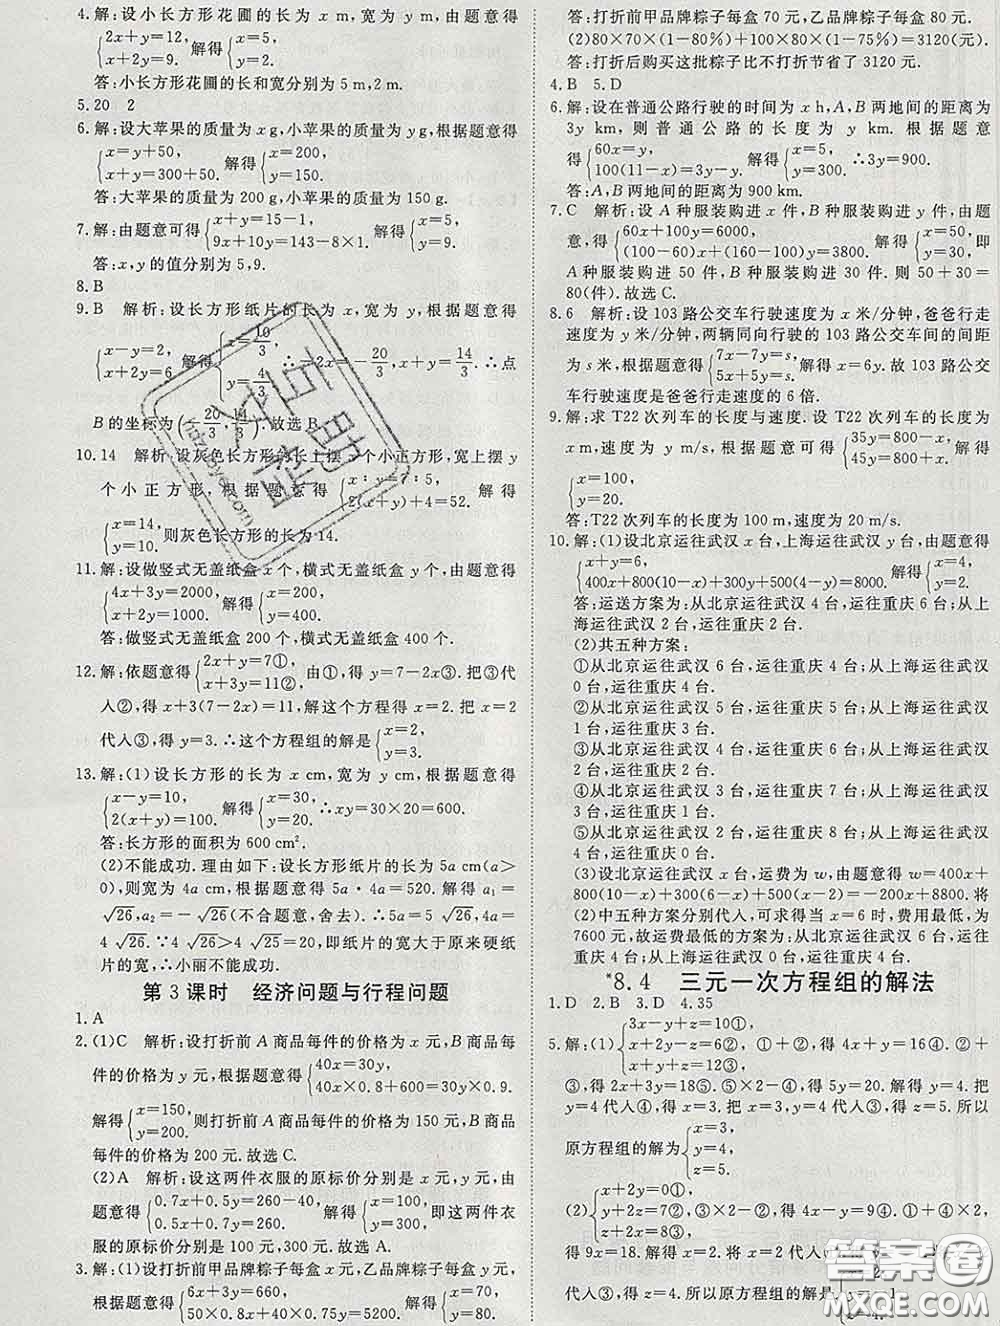 4.解:设小长方形花圃的长为 x m,宽为 y m,由题意得
{2x+y=12, x+2y=9. 解得{x=5, y=2.
答:小长方形花圃的长和宽分别为 5 m,2 m.
5.20 2
6.解:设大苹果的质量为 x g,小苹果的质量为 y g,根据题意得
{x=y+50, x+y=300+50. 解得{x=200, y=150.
答:大苹果的质量为 200 g,小苹果的质量为 150 g.
7.解:由题意可得{x+y=15-1, 9x+10y=143-8×1. 解得{x=5, y=9.
答:x,y 的值分别为 5,9.
8.B
9.B 解析:设长方形纸片的长为 x,宽为 y,根据题意得
{x-y=2, x+2y=6. 解得{x=10/3, y=4/3. ∴-2x=-20/3, x+y=14/3. ∴点
B 的坐标为(-20/3, 14/3).故选 B.
10.14 解析:设灰色长方形的长上摆 x 个小正方形,宽上摆 y
个小正方形,根据题意得{x:y=7:5, 2(x+y)+4=52. 解得
{x=14, y=10. 则灰色长方形的长为 14.
11.解:设做竖式无盖纸盒 x 个,横式无盖纸盒 y 个,由题意得
{4x+3y=2000, x+2y=1000. 解得{x=200, y=400.
答:做竖式无盖纸盒 200 个,横式无盖纸盒 400 个.
12.解:依题意得{2x+y=7①, x+3y=11②, 由①,得 y=7-2x③.把③代
入②,得 x+3(7-2x)=11,解这个方程得 x=2.把 x=2
代入③,得 y=3.∴这个方程组的解是{x=2, y=3.
13.解:(1)设长方形的长为 x cm,宽为 y cm,根据题意得
{x-y=10, 2(x+y)=100. 解得{x=30, y=20. ∴xy=30×20=600.
答:长方形的面积为 600 cm².
(2)不能成功.理由如下:设长方形纸片的长为 5a cm(a>
0),则宽为 4a cm,根据题意得 5a·4a=520.解得 a₁=
√26,a₂=-√26(不合题意,舍去).∴5a=5√26,4a=
4√26.∵4√26>4√25=20,即纸片的宽大于原来硬纸
片的宽,∴小丽不能成功.
第 3 课时 经济问题与行程问题
1.A
2.(1)C 解析:设打折前 A 商品每件的价格为 x 元,B 商品每
件的价格为 y 元,根据题意得{40x=30y, 40x×0.8+600=30y×0.9.
解得{x=150, y=200. 则打折前 A 商品每件的价格为 150 元,B 商品
每件的价格为 200 元.故选 C.
(2)A 解析:设这两件衣服的原标价分别是 x 元,y 元,由题
意得{0.7x+0.5y=260-40, 0.5x+0.7y=260. 解得{x=100, y=300. 即这两件衣
服的原标价分别是 100 元,300 元.故选 A.
3.解:(1)设打折前甲品牌粽子每盒 x 元,乙品牌粽子每盒 y 元.
根据题意得{6x+3y=660, 50×0.8x+40×0.75y=5200. 解得{x=70, y=80.
答:打折前甲品牌粽子每盒 70 元,乙品牌粽子每盒 80 元.
(2)80×70×(1-80%)+100×80×(1-75%)=3120(元).
答:打折后购买这批粽子比不打折节省了 3120 元.
4.B 5.D
6.解:设在普通公路行驶的时间为 x h,A,B 两地间的距离为
3y km,则普通公路的长度为 y km.根据题意
得{60x=y, 100(11-x)=3y-y. 解得{x=5, y=300. ∴3y=900.
答:A,B 两地间的距离为 900 km.
7.C 解析:设 A 种服装购进 x 件,B 种服装购进 y 件,由题
意,得{60x+100y=6000, (100-60)x+(160-100)y=3800. 解得{x=50, y=30, 即
A 种服装购进 50 件,B 种服装购进 30 件.故 50+30=
80(件).故选 C.
8.6 解析:设 103 路公交车行驶速度为 x 米/分钟,爸爸行走
速度为 y 米/分钟,两辆同向行驶的 103 路公交车间的间距
为 s 米,根据题意得{7x-7y=s, 5x+5y=s. 解得 x=6y.故 103 路公交
车行驶速度是爸爸行走速度的 6 倍.
9.解:求 T22 次列车的长度与速度.设 T22 次列车的长度为
x m,速度为 y m/s,根据题意可得{35y=800-x, 45y=800+x. 解得
{x=100, y=20.
答:T22 次列车的长度为 100 m,速度为 20 m/s.
10.解:(1)设北京运往武汉 x 台,上海运往武汉 y 台,由题意得
{x+y=6, 400x+800(10-x)+300y+500(4-y)=8000. 解得{x=4, y=2.
答:运送方案为:从北京运往武汉 4 台,运往重庆 6 台;从上
海运往武汉 2 台,运往重庆 2 台.
(2)共五种方案:
①从北京运往武汉 6 台,运往重庆 4 台;从上海运往武汉
0 台,运往重庆 4 台.
②从北京运往武汉 5 台,运往重庆 5 台;从上海运往武汉
1 台,运往重庆 3 台.
③从北京运往武汉 4 台,运往重庆 6 台;从上海运往武汉
2 台,运往重庆 2 台.
④从北京运往武汉 3 台,运往重庆 7 台;从上海运往武汉
3 台,运往重庆 1 台.
⑤从北京运往武汉 2 台,运往重庆 8 台;从上海运往武汉
4 台,运往重庆 0 台.
(3)设北京运往武汉 x 台,运费为 w,由题意得 w=400x+
800(10-x)+300(6-x)+500(x-2)=-200x+8800.将
(2)中五种方案分别代入,可求得当 x=6 时,费用最低,为
7600 元,故运费最低的方案为:从北京运往武汉 6 台,运往
重庆 4 台;从上海运往武汉 0 台,运往重庆 4 台.
*8.4 三元一次方程组的解法
1.D 2.B 3.D 4.35
5.解:(1){3x-y+z=10①, x+2y-z=6②, x+y+z=12③, ①+②,得 4x+y=16④.②+
③,得 2x+3y=18⑤.⑤×2-④,得 5y=20.解得 y=4.把
y=4 代入④,得 x=3.把 x=3,y=4 代入③,得 z=5.所以
原方程组的解为{x=3, y=4, z=5.
(2){x+2y=0①, 2x+7z=22②, z+2x=8③, 
得 9x=18.解得 x=2.将 x=2 代入
代入③,得 z=4.所以原方程组的解是
答案圈
MXQE.COM